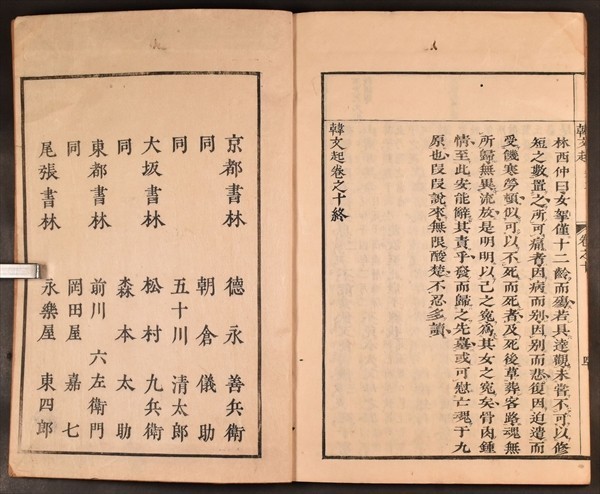 韓文起
卷之十
林西仲曰女挐僅十二齡而殤若具達觀未嘗不可以修
短之數置之所可痛者因病而别因别而悲復因迫遣而
受饑寒勞頓似可以不死而死者及死後草葬客路魂無
所歸無異流放是明明以己之寃為其女之寃矣骨肉鍾
情至此安能辭其責乎發而歸之先墓或可慰亡魂于九
原也段段說來無限酸楚不忍多讀
韓文起卷之十終
京都書林 德永善兵衛
同 朝倉儀助
同 五十川清太郎
大坂書林 松村九兵衛
同 森本太助
東都書林 前川六左衛門
同 岡田屋嘉七
尾張書林 永樂屋東四郎